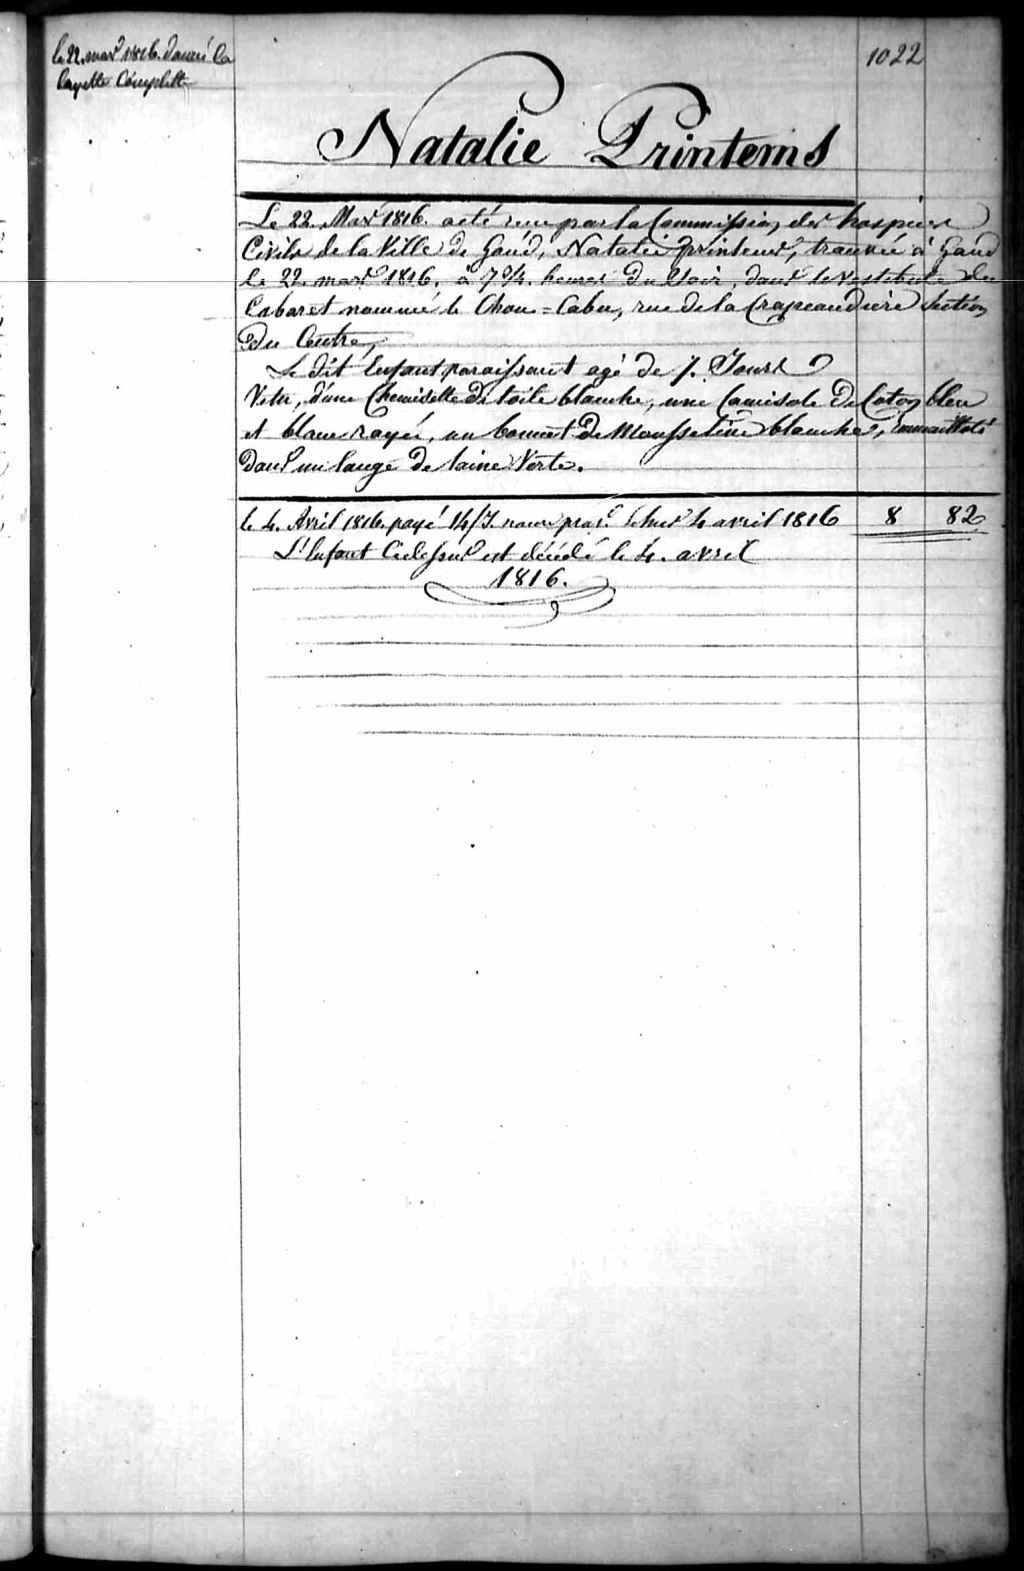 le 22. mars 1816. donné la
layette Complette
1022
Natalie Printems
Le 22. Mars 1816. a été reçu par la Commission des hospices
Civils de la Ville de Gand, Natalie Printems, trouvée à Gand
Le 22. mars 1816. à 7 3/4. heures du Soir, dans le vestibule du
Cabaret nommé le Chou=Cabu, rue de la Crapeaudière Section
du Centre,
Le dit Enfant paraissant agé de 7. Jours
Vetu, d'une Chemisette de toile blanche, une Camisole de Coton bleu
et blanc rayée, un bonnet de Mousseline blanche, emmailloté
dans un lange de laine Verte.
le 4. Avril 1816. payé 14/J. nour 4 avril 1816 8 82
L'Enfant Cidessus est décédé le 4. avril
1816.